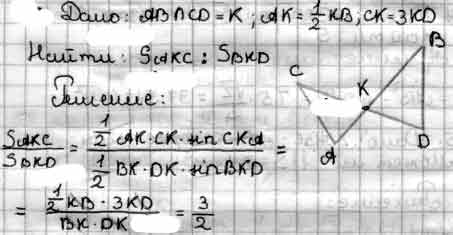 Дано: AB∩CD = K; AK = 1/2 KB; CK = 3KD
Найти: SAKC : SBKD
Решение:
SAKC / SBKD = (1/2 AK · CK · sin CKA) / (1/2 BK · DK · sin BKD) =
= (1/2 KB · 3KD) / (BK · DK) = 3/2
C
K
B
A
D